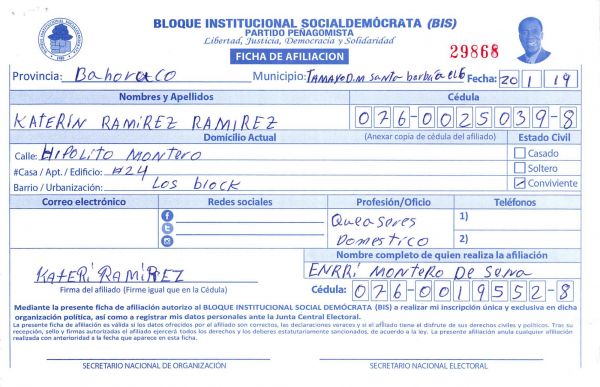 BLOQUE INSTITUCIONAL SOCIALDEMÓCRATA (BIS)
PARTIDO PEÑAGOMISTA
Libertad, Justicia, Democracia y Solidaridad
FICHA DE AFILIACION
29868
Provincia: Bahoruco Municipio: TAMAYO D.M santa barbara el 6 Fecha: 20 1 19
Nombres y Apellidos Cédula
KATERIN RAMIREZ RAMIREZ 076-0025039-8
Domicilio Actual (Anexar copia de cédula del afiliado) Estado Civil
Calle: HIPOLITO MONTERO Casado
#Casa / Apt. / Edificio: #24 Soltero
Barrio / Urbanización: Los block Conviviente
Correo electrónico Redes sociales Profesión/Oficio Teléfonos
Queaseres 1)
Domestico 2)
Nombre completo de quien realiza la afiliación
KATERI RAMIREZ ENRRI MONTERO De Sena
Firma del afiliado (Firme igual que en la Cédula) Cédula: 076-0019552-8
Mediante la presente ficha de afiliación autorizo al BLOQUE INSTITUCIONAL SOCIAL DEMÓCRATA (BIS) a realizar mi inscripción única y exclusiva en dicha
organización política, así como a registrar mis datos personales ante la Junta Central Electoral.
La presente ficha de afiliación es válida si los datos ofrecidos por el afiliado son correctos, las declaraciones veraces y si el afiliado tiene el disfrute de sus derechos civiles y políticos. Tras su
recepción, sello y firmas autorizadas el afiliado ejercerá todos los derechos y los deberes estatutariamente sancionados, de acuerdo a la ley. La presente afiliación anula cualquier afiliación
realizada con anterioridad a la fecha que aparece en esta ficha.
SECRETARIO NACIONAL DE ORGANIZACIÓN SECRETARIO NACIONAL ELECTORAL